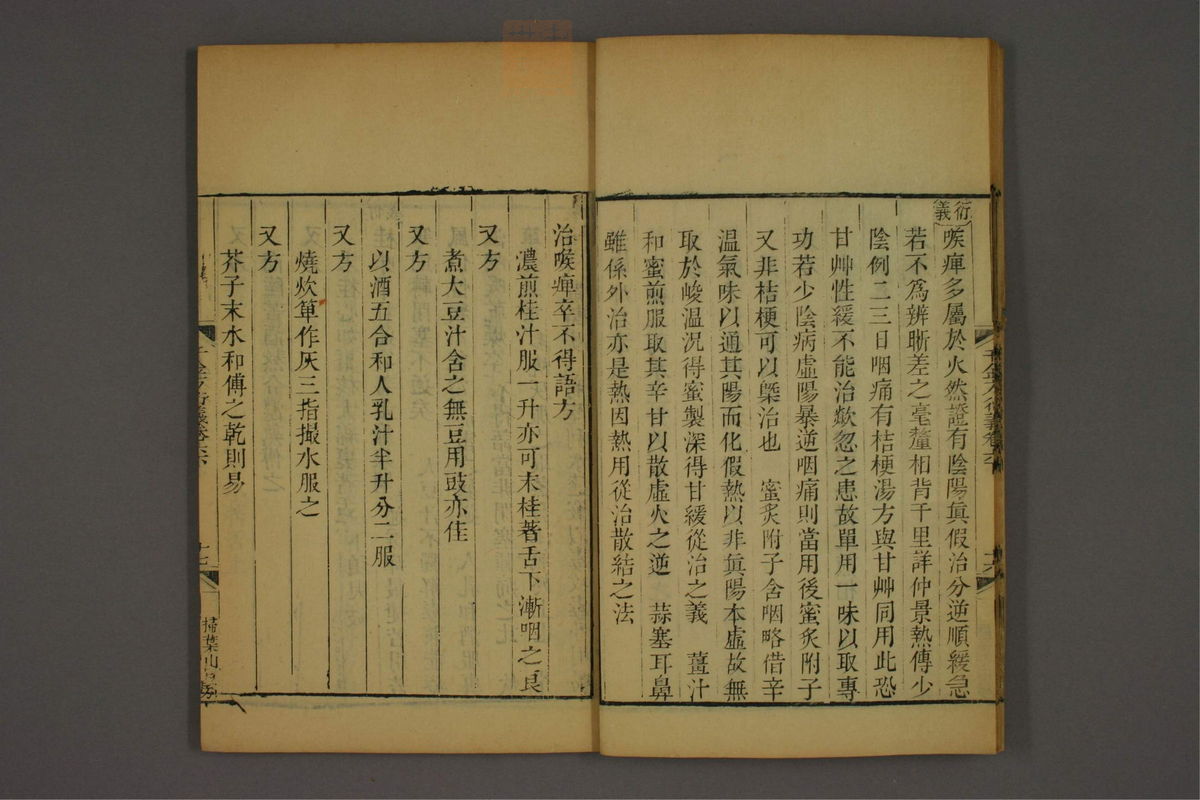 衍義
喉痺多屬於火然證有陰陽眞假治分逆順緩急
若不爲辨晰差之毫釐相背千里詳仲景熱傳少
陰例二三日咽痛有桔梗湯方與甘艸同用此恐
甘艸性緩不能治欻忽之患故單用一味以取專
功若少陰病虛陽暴逆咽痛則當用後蜜炙附子
又非桔梗可以槩治也　蜜炙附子含咽略借辛
溫氣味以通其陽而化假熱以非眞陽本虛故無
取於峻溫况得蜜製深得甘緩從治之義　薑汁
和蜜煎服取其辛甘以散虛火之逆　蒜塞耳鼻
雖係外治亦是熱因熱用從治散結之法
治喉痺卒不得語方
濃煎桂汁服一升亦可末桂著舌下漸咽之良
又方
煮大豆汁含之無豆用豉亦佳
又方
以酒五合和人乳汁半升分二服
又方
燒炊箄作灰三指撮水服之
又方
芥子末水和傅之乾則易
千金方衍義卷六
十七
掃葉山房